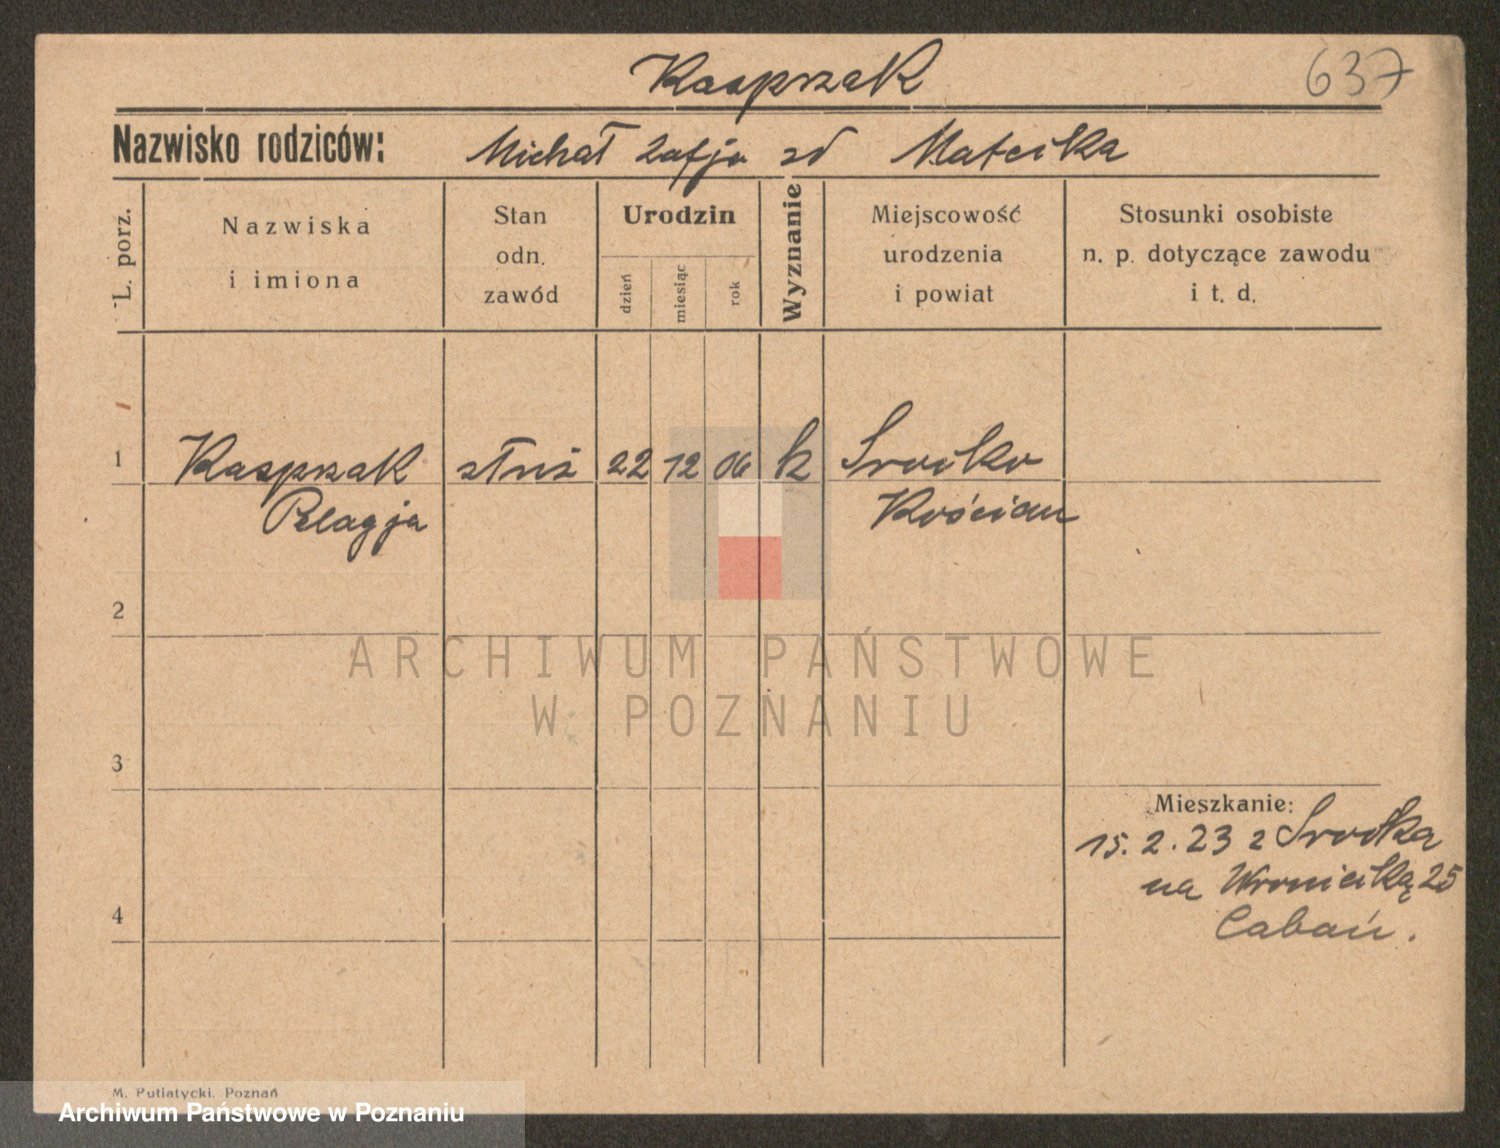 Kasprzak
637
Nazwisko rodziców: Michał Zofja zd Matecka
L. porz.
Nazwiska
i imiona
Stan
odn.
zawód
Urodzin
dzień
miesiąc
rok
Wyznanie
Miejscowość
urodzenia
i powiat
Stosunki osobiste
n. p. dotyczące zawodu
i t. d.
1 Kasprzak służ 22 12 06 k Srocko
Pelagja Kościan
2
ARCHIWUM PAŃSTWOWE
W POZNANIU
3
Mieszkanie:
15. 2. 23 z Srocka
na Wroniecką 25
4
Cabań.
M. Putiatycki. Poznań
Archiwum Państwowe w Poznaniu